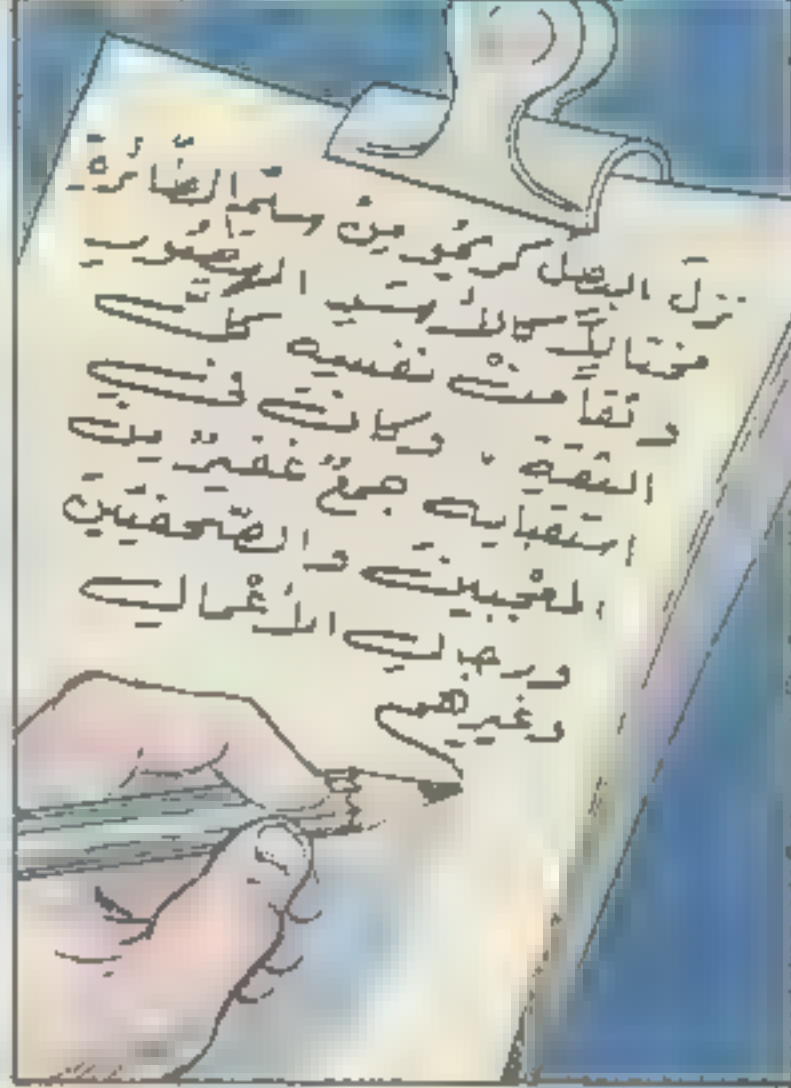 نزلَ البطل كريمُو مِنْ سلّمِ الطّائرةْ
مختالًا كالأسد الهصور
وثقًا منْ نفسه كلّ
الثقة، وكان في
استقباله جمعٌ غفيرٌ من
المعْجبين والصّحفيّين
ورجال الأعْمال
وغيرهم